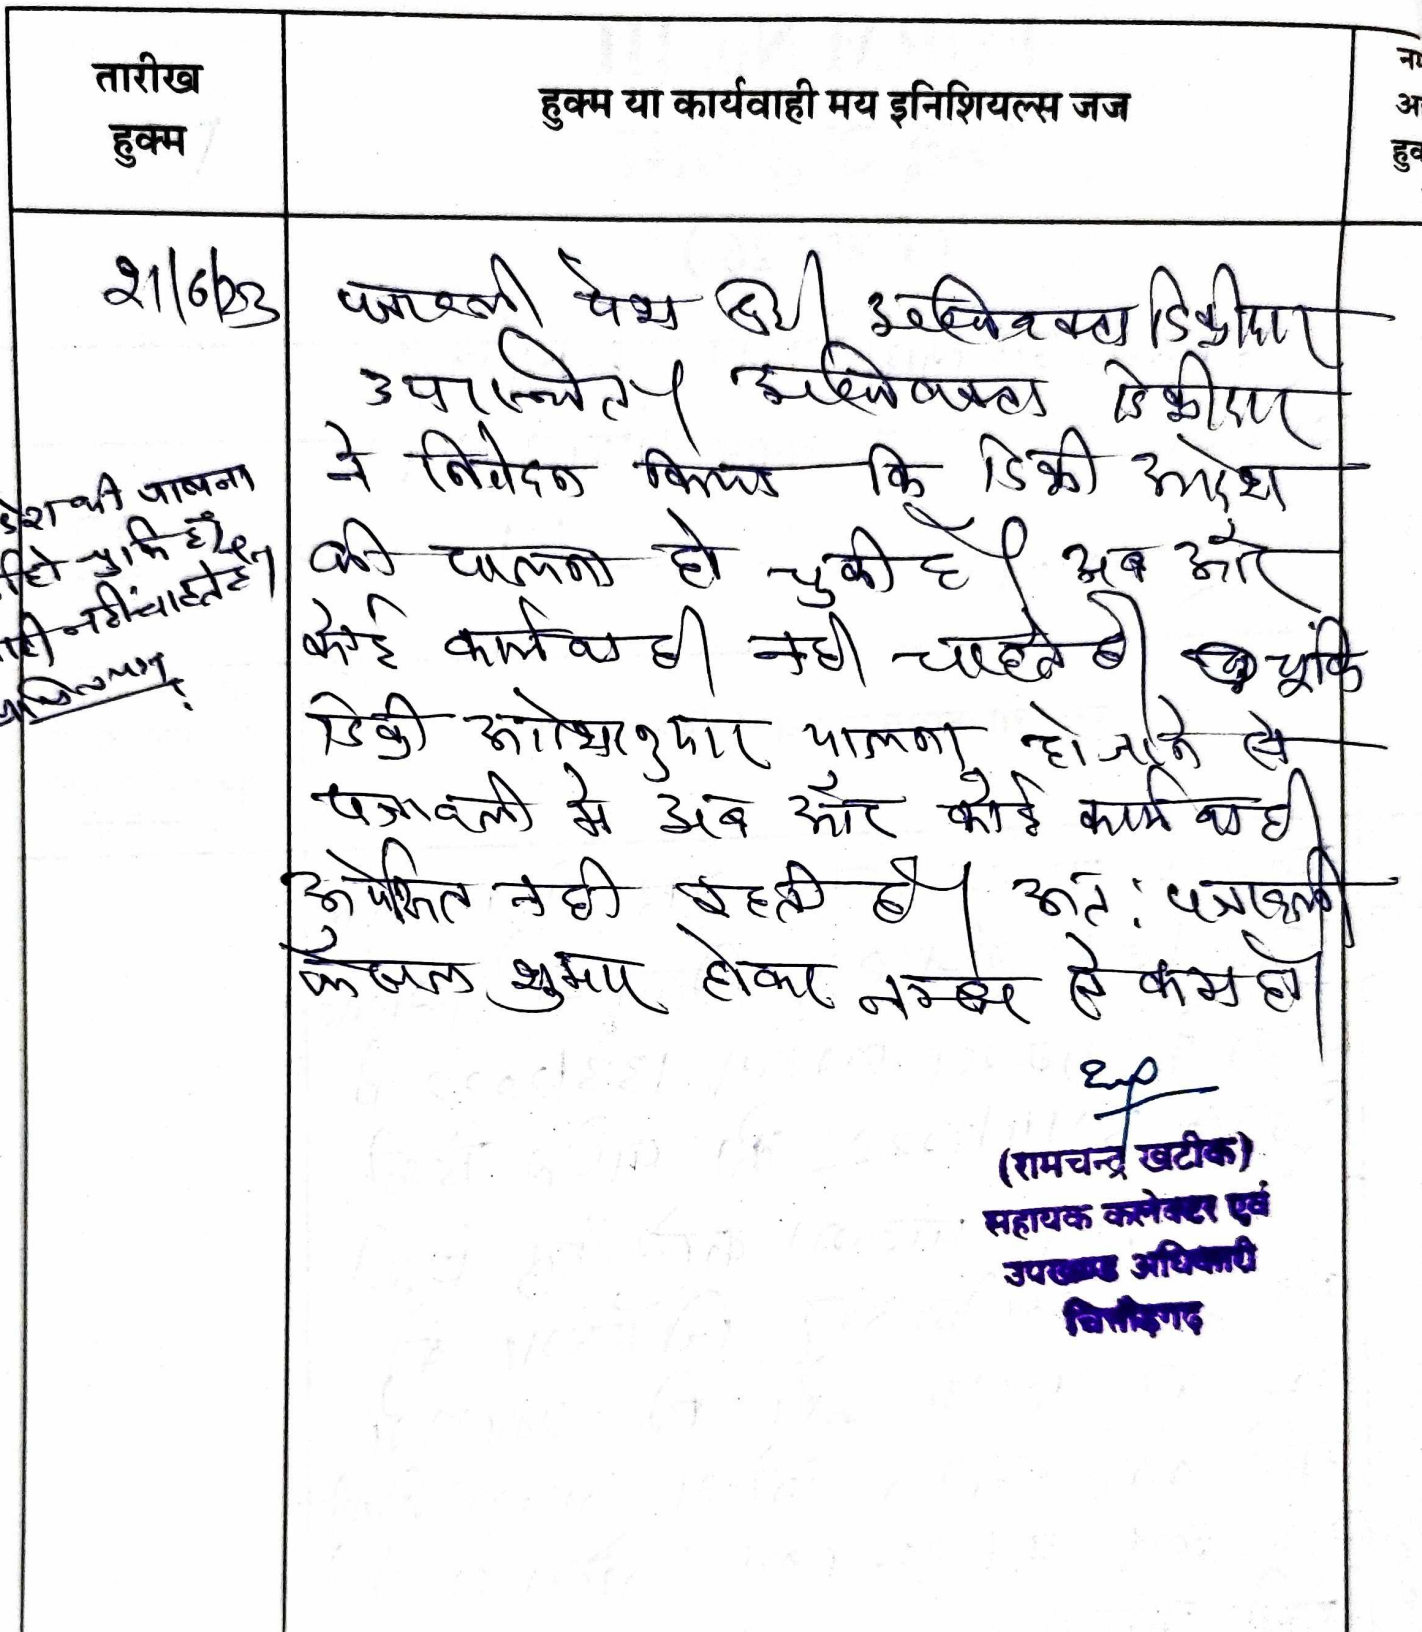 तारीख
हुक्म
हुक्म या कार्यवाही मय इनिशियल्स जज
21/6/23
पत्रावली पेश हुयी। अधिवक्ता डिक्रीदार
उपस्थित। अधिवक्ता डिक्रीदार
ने निवेदन किया कि डिक्री आदेश
की पालना हो चुकी है। अब और
कोई कार्यवाही नही चाहते है। चूंकि
डिक्री आदेशानुसार पालना हो जाने से
पत्रावली मे अब और कोई कार्यवाही
अपेक्षित नही रहती है। अतः पत्रावली
फैसल शुमार होकर नम्बर से कम हो।
की पालना
हो चुकि है
नहीं चाहते है।
(रामचन्द्र खटीक)
सहायक कलेक्टर एवं
उपखण्ड अधिकारी
चित्तौड़गढ़